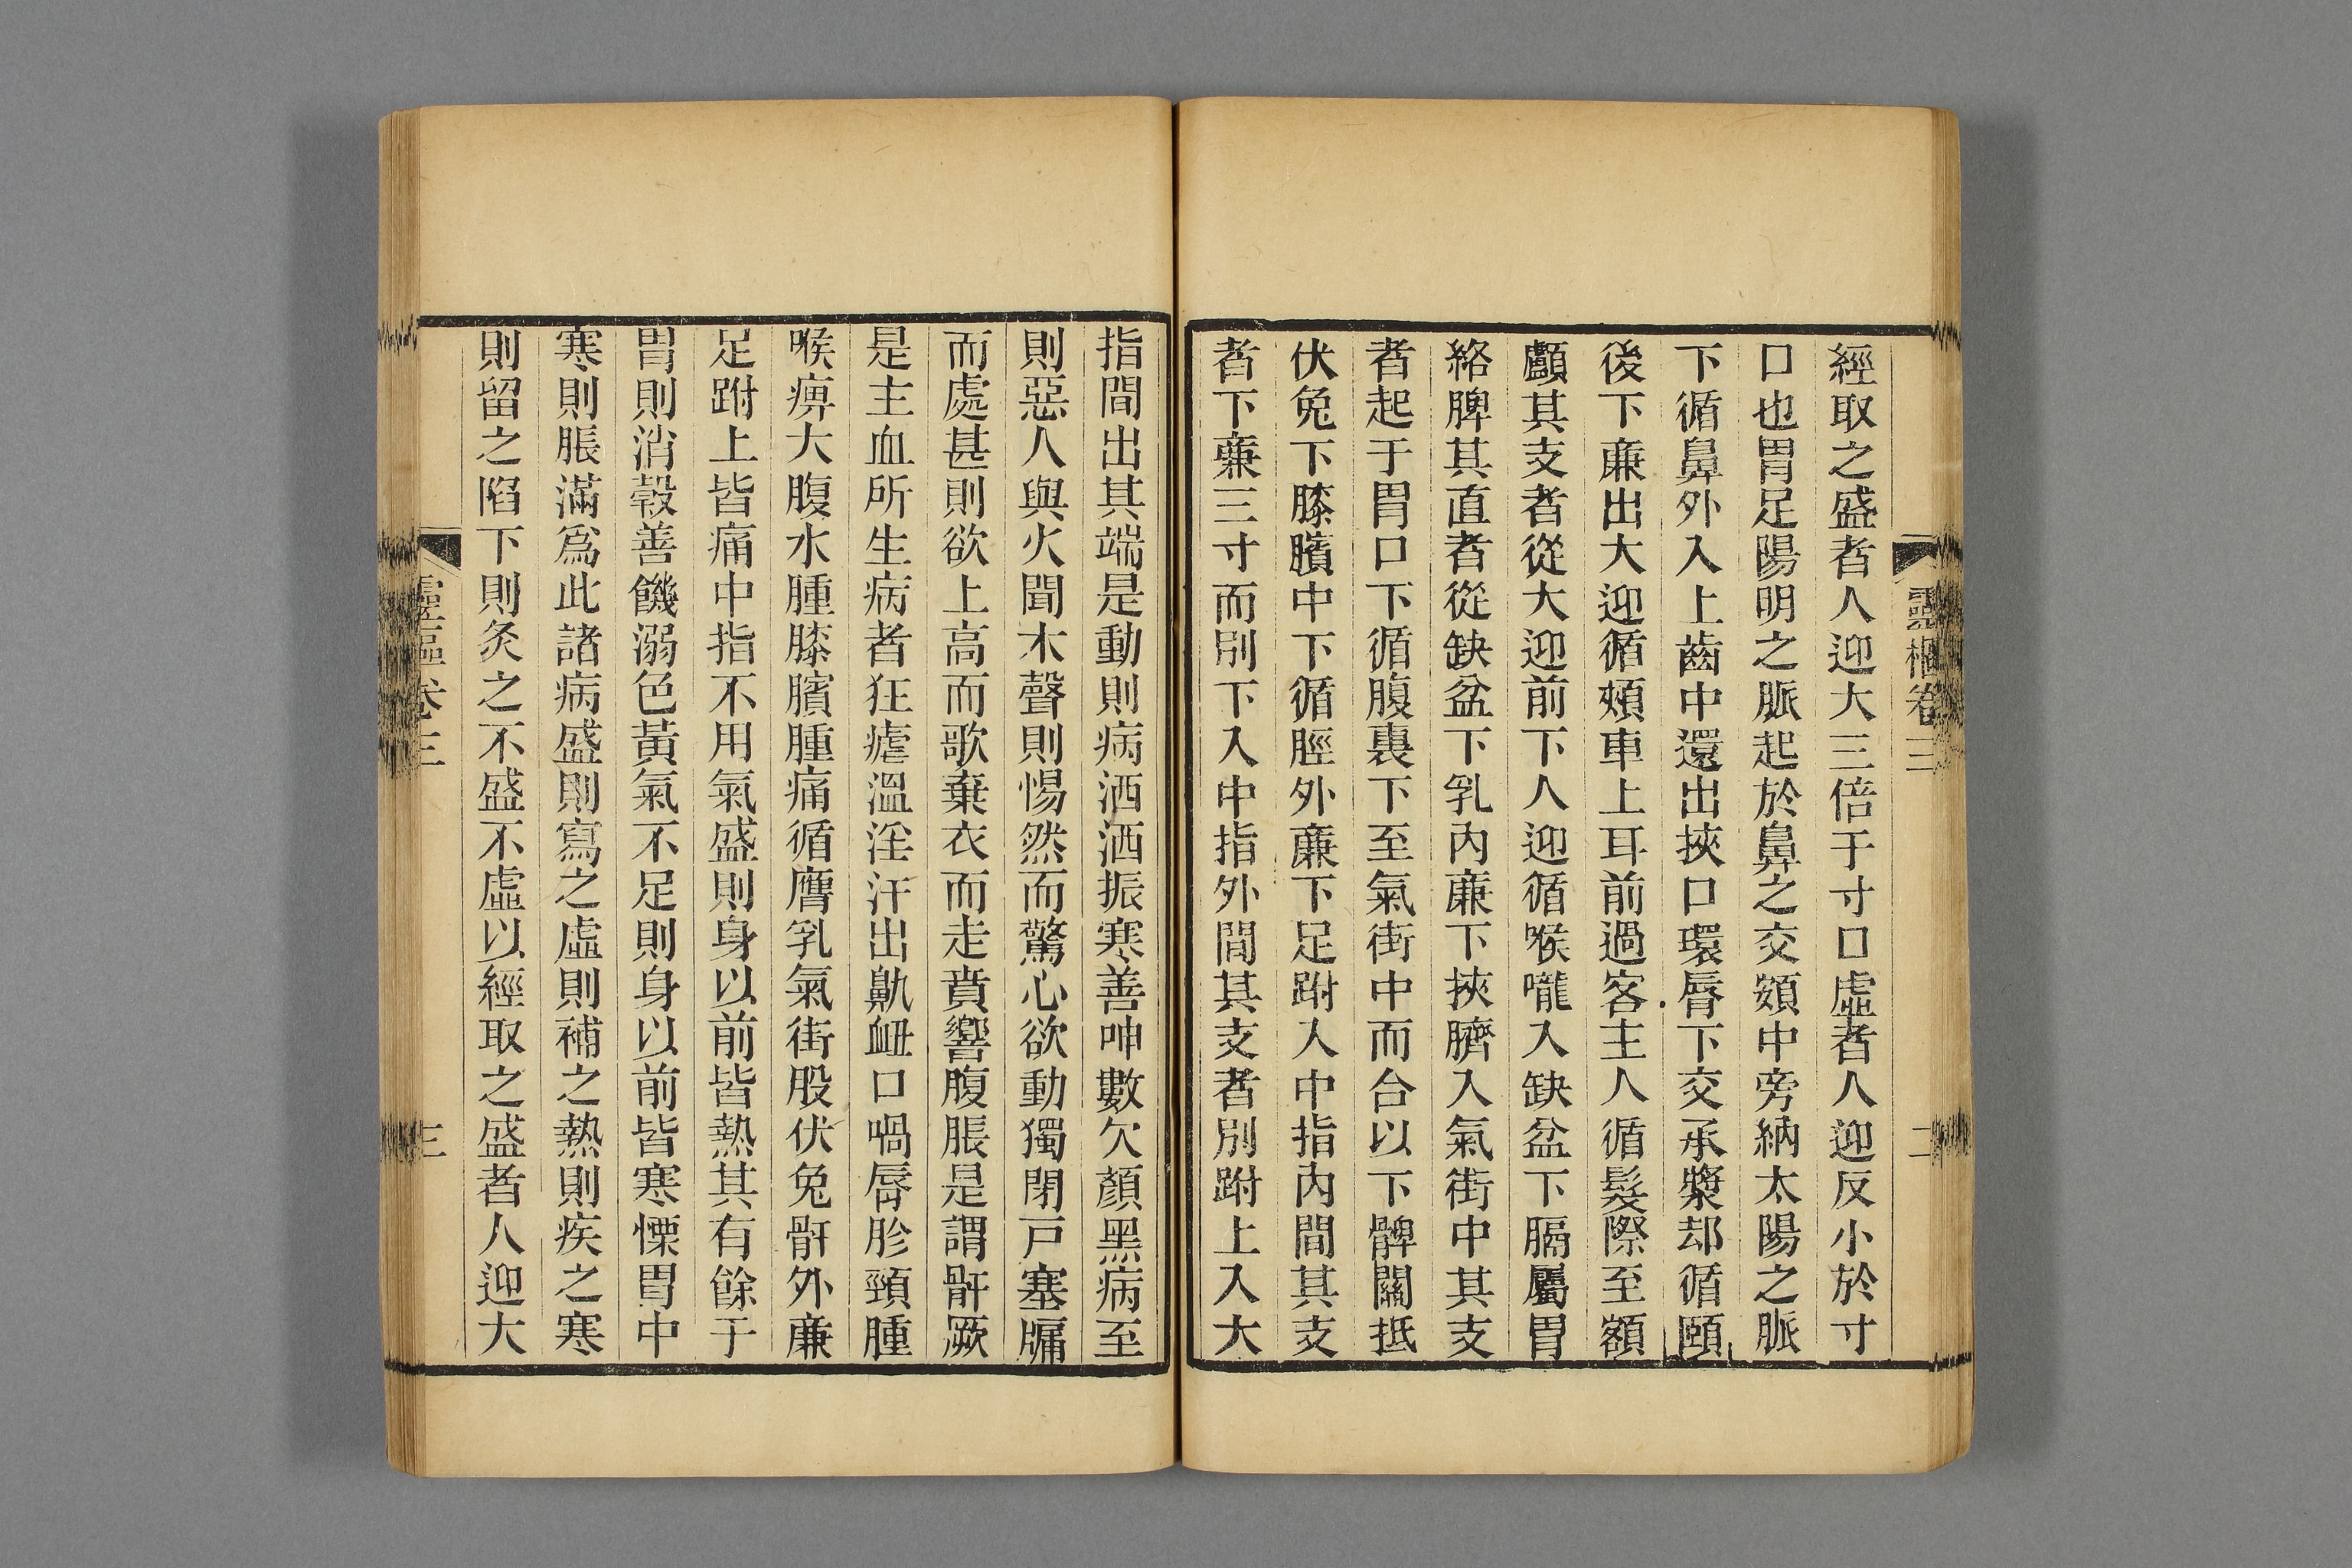 經取之盛者人迎大三倍于寸口虛者人迎反小於寸
口也胃足陽明之脈起於鼻之交頞中旁納太陽之脈
下循鼻外入上齒中還出挾口環脣下交承漿却循頤
後下廉出大迎循頰車上耳前過客主人循髮際至額
顱其支者從大迎前下人迎循喉嚨入缺盆下膈屬胃
絡脾其直者從缺盆下乳內廉下挾臍入氣街中其支
者起于胃口下循腹裏下至氣街中而合以下髀關抵
伏兔下膝臏中下循脛外廉下足跗入中指內間其支
者下廉三寸而別下入中指外間其支者別跗上入大
靈樞卷三
二
指間出其端是動則病洒洒振寒善呻數欠顏黑病至
則惡人與火聞木聲則惕然而驚心欲動獨閉戶塞牖
而處甚則欲上高而歌棄衣而走賁響腹脹是謂骭厥
是主血所生病者狂瘧溫淫汗出鼽衄口喎脣胗頸腫
喉痹大腹水腫膝臏腫痛循膺乳氣街股伏兔骭外廉
足跗上皆痛中指不用氣盛則身以前皆熱其有餘于
胃則消穀善饑溺色黃氣不足則身以前皆寒慄胃中
寒則脹滿爲此諸病盛則寫之虛則補之熱則疾之寒
則留之陷下則灸之不盛不虛以經取之盛者人迎大
靈樞卷三
三